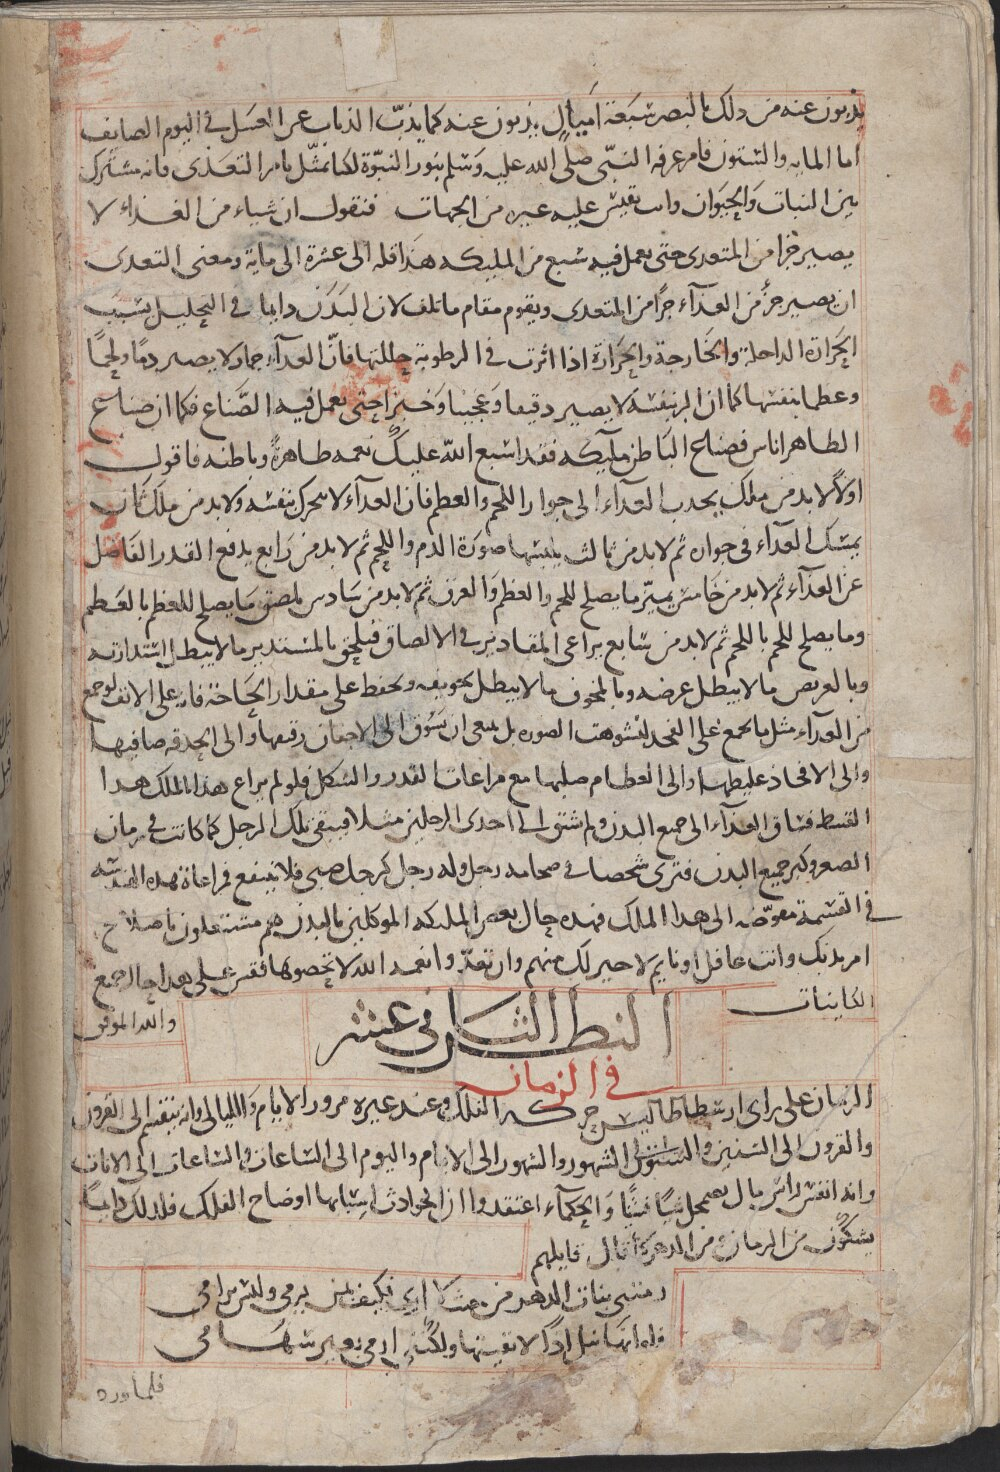 يذبون عنه من ذلك بالبصر سبعة اميال يذبون عنه كما يذبّ الذباب عن العسل في اليوم الصايف
اما المايه والستون فامر عرفه النبّي صلى الله عليه وسلم بنور النبوّة لكنا نمثّل بامر التغذى فانه مشترك
بين النبات والحيوان وانت تقيس عليه غيره من الجهات فنقول ان شياء من الغذاء لا
يصير جزا من المتغدى حتى يعمل فيه سبع من المليكه هذا قله الى عشرة الى ماية ومعنى التغدى
ان يصير جزأ من الغدآء جزا من المتغدى ويقوم مقام ما تلف لان البدن دايما في التحليل بسبب
الحرارة الداخلة والخارجة والحرارة اذا اثرت في الرطوبة حللتها فانّ الغدآء جماد لا يصير دمًا ولحمًا
وعظما بنفسها كما ان البر بنفسه لا يصير دقيقا وعجينا وخبزا حتى يعمل فيه الصّناع فكما ان صناع
الظاهر اناس فصناع الباطن مليكه فقد اسبغ الله عليك نعمه ظاهرةً وباطنه فاقول
اولاً لا بد من ملك يجدب الغدآء الى جوار اللحم والعظم فان الغدآء لا يتحرك بنفسه ولا بد من ملك ثان
يمسك الغدآء في جواره ثم لا بد من ثالث يلبسها صورة الدم واللحم ثم لا بد من رابع يدفع القدر الفاضل
عن الغدآء ثم لا بد من خامس يميّز ما يصلح للحم والعظم والعرق ثم لا بد من سادس يلصق ما يصلح للعظم بالعظم
وما يصلح للحم باللحم ثم لا بد من سابع يراعى المقادير في الالصاق فيلحق بالمستدير ما لا يبطل استدارته
وبالعريض ما لا يبطل عرضه وبالمجوف ما لا يبطل تجويفه ويحفظ على مقدار الحاجة فانه على الانف لو جمع
من الغدآء مثل ما يجمع على الفخد لتشوهت الصوره بل ينبغى ان يسوق الى الاجفان رقيقها والى الحدقه صافيها
والى الافخاذ غليظها والى العظام صلبها مع مراعات القدر والشكل فلو لم يراع هذا الملك هدا
القسط فساق الغدآء الى جميع البدن ولم يسق الى احدى الرجلين مثلا فبقى تلك الرجل كما كانت في زمان
الصغر وكبر جميع البدن فترى شخصا في ضخامه رجل وله رجل كرجل صبى فلا ينتفع فمراعاة هده الهندسه
في القسمة مفوّضه الى هدا الملك فهده حال بعض المليكه الموكلين بالبدن هم مشتغلون باصلاح
امر بدنك وانت غافل او نايم لا خبر لك منهم وان تعدّوا نعمه الله لا تحصوها فقس على هدا حال جميع
الكاينات
والله الموفق
النظر الثانى عشر
في الزمان
الزمان على راى ارسطاطاليس حركه الفلك وعند غيره مرور الايام والليالى وانه ينقسم الى القرون
والقرون الى السنين والسنون الى الشهور والشهور الى الايام واليوم الى الساعات والساعات الى الانات
وانه انفس راس مال يضمحل شيًا فشيًا والحكمآء اعتقدوا ان الحوادث اسبابها اوضاع الفلك فلدلك دايمًا
يشكون من الزمان ومن الدهر كما قال قايلهم
رمتنى بنات الدهر من حيث لا ارى فكيف بمن يرمى وليس برامى
فلو انها نبل اذًا لاتقيتها ولكننى ارمى بغير سهامى
فلما ورد